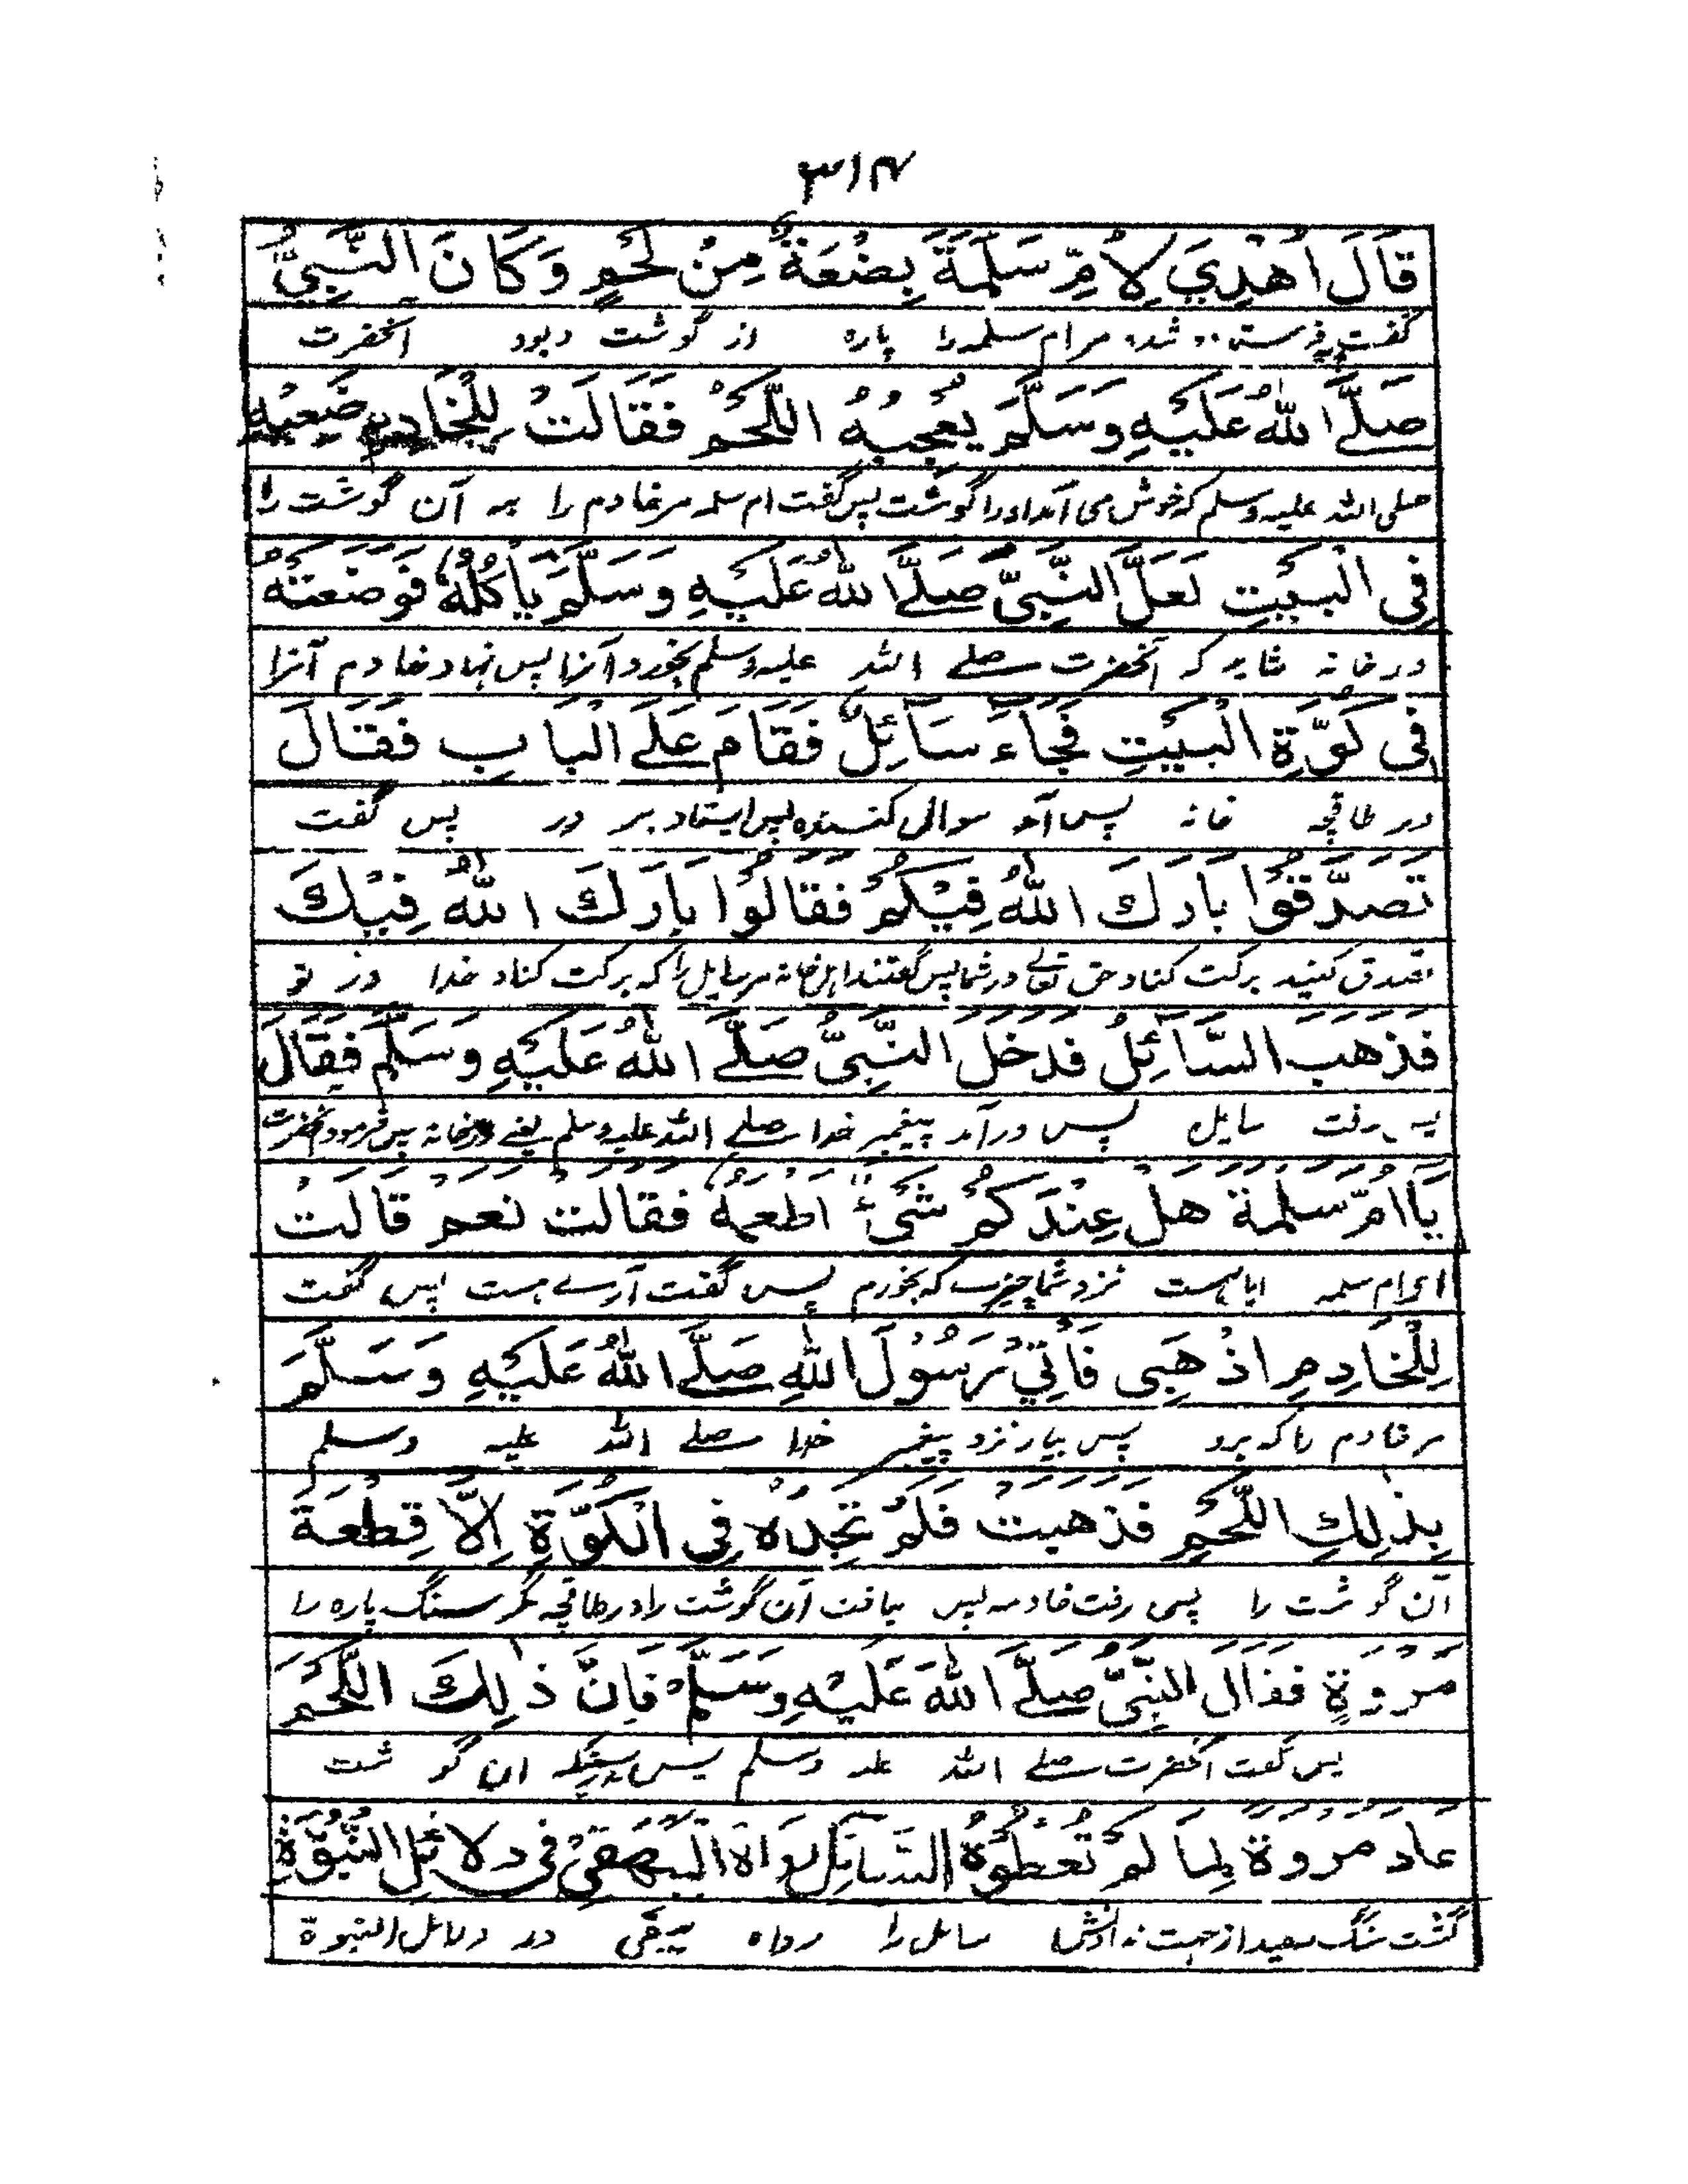 ۳۱۴
قَالَ اُهْدِيَ لِاُمِّ سَلَمَةَ بِضْعَةٌ مِنْ لَحْمٍ وَكَانَ النَّبِيُّ
گفت فرستاده شد مرام سلمه را پاره از گوشت و بود آنحضرت
صَلَّے اللهُ عَلَيْهِ وَسَلَّمَ يُعْجِبُهُ اللَّحْمُ فَقَالَتْ لِلْخَادِمِ ضَعِيْهِ
صلی الله علیه وسلم که خوش می آمد اورا گوشت پس گفت ام سلمه مر خادم را بنه آن گوشت را
فِی الْبَيْتِ لَعَلَّ النَّبِیَّ صَلَّے اللهُ عَلَيْهِ وَسَلَّمَ يَأْكُلُهُ فَوَضَعَتْهُ
در خانه شاید که آنحضرت صلے الله علیه وسلم بخورد آنرا پس نهاد خادم آنرا
فِی كَوَّةِ الْبَيْتِ فَجَاءَ سَآئِلٌ فَقَامَ عَلَے الْبَابِ فَقَالَ
در طاقچه خانه پس آمد سوالی کننده پس ایستاد بر در پس گفت
تَصَدَّقُوْا بَارَكَ اللهُ فِيْكُمْ فَقَالُوْا بَارَكَ اللهُ فِيْكَ
تصدق کنید برکت کناد حق تعالے در شما پس گفتند اهل خانه مر سایل را که برکت کناد خدا در تو
فَذَهَبَ السَّآئِلُ فَدَخَلَ النَّبِیُّ صَلَّے اللهُ عَلَيْهِ وَسَلَّمَ فَقَالَ
پس رفت سایل پس درآمد پیغمبر خدا صلے الله علیه وسلم یعنے در خانه پس فرمود آنحضرت
يَا اُمَّ سَلَمَةَ هَلْ عِنْدَكُمْ شَیْءٌ اَطْعَمُهُ فَقَالَتْ نَعَمْ قَالَتْ
ای ام سلمه ایا هست نزد شما چیزے که بخورم پس گفت آرے هست پس گفت
لِلْخَادِمِ اذْهَبِی فَأْتِيْ رَسُوْلَ اللهِ صَلَّے اللهُ عَلَيْهِ وَسَلَّمَ
مر خادم را که برو پس بیار نزد پیغمبر خدا صلے الله علیه وسلم
بِذٰلِكِ اللَّحْمِ فَذَهَبَتْ فَلَمْ تَجِدْهُ فِی الْكَوَّةِ اِلَّا قِطْعَةَ
آن گوشت را پس رفت خادمه پس نیافت آن گوشت را در طاقچه مگر سنگ پاره را
مَرْوَةٍ فَقَالَ النَّبِیُّ صَلَّے اللهُ عَلَيْهِ وَسَلَّمَ فَاِنَّ ذٰلِكَ اللَّحْمَ
پس گفت آنحضرت صلے الله علیه وسلم پس بدرستیکه ان گوشت
عَادَ مَرْوَةً لِمَا لَمْ تُعْطُوْهُ السَّآئِلَ رَوَاهُ الْبَيْهَقِیُّ فِی دَلَائِلِ النُّبُوَّةِ
گشت سنگ سفید از جهت نه دادن شما سائل را رواه بیهقی در دلائل النبوة